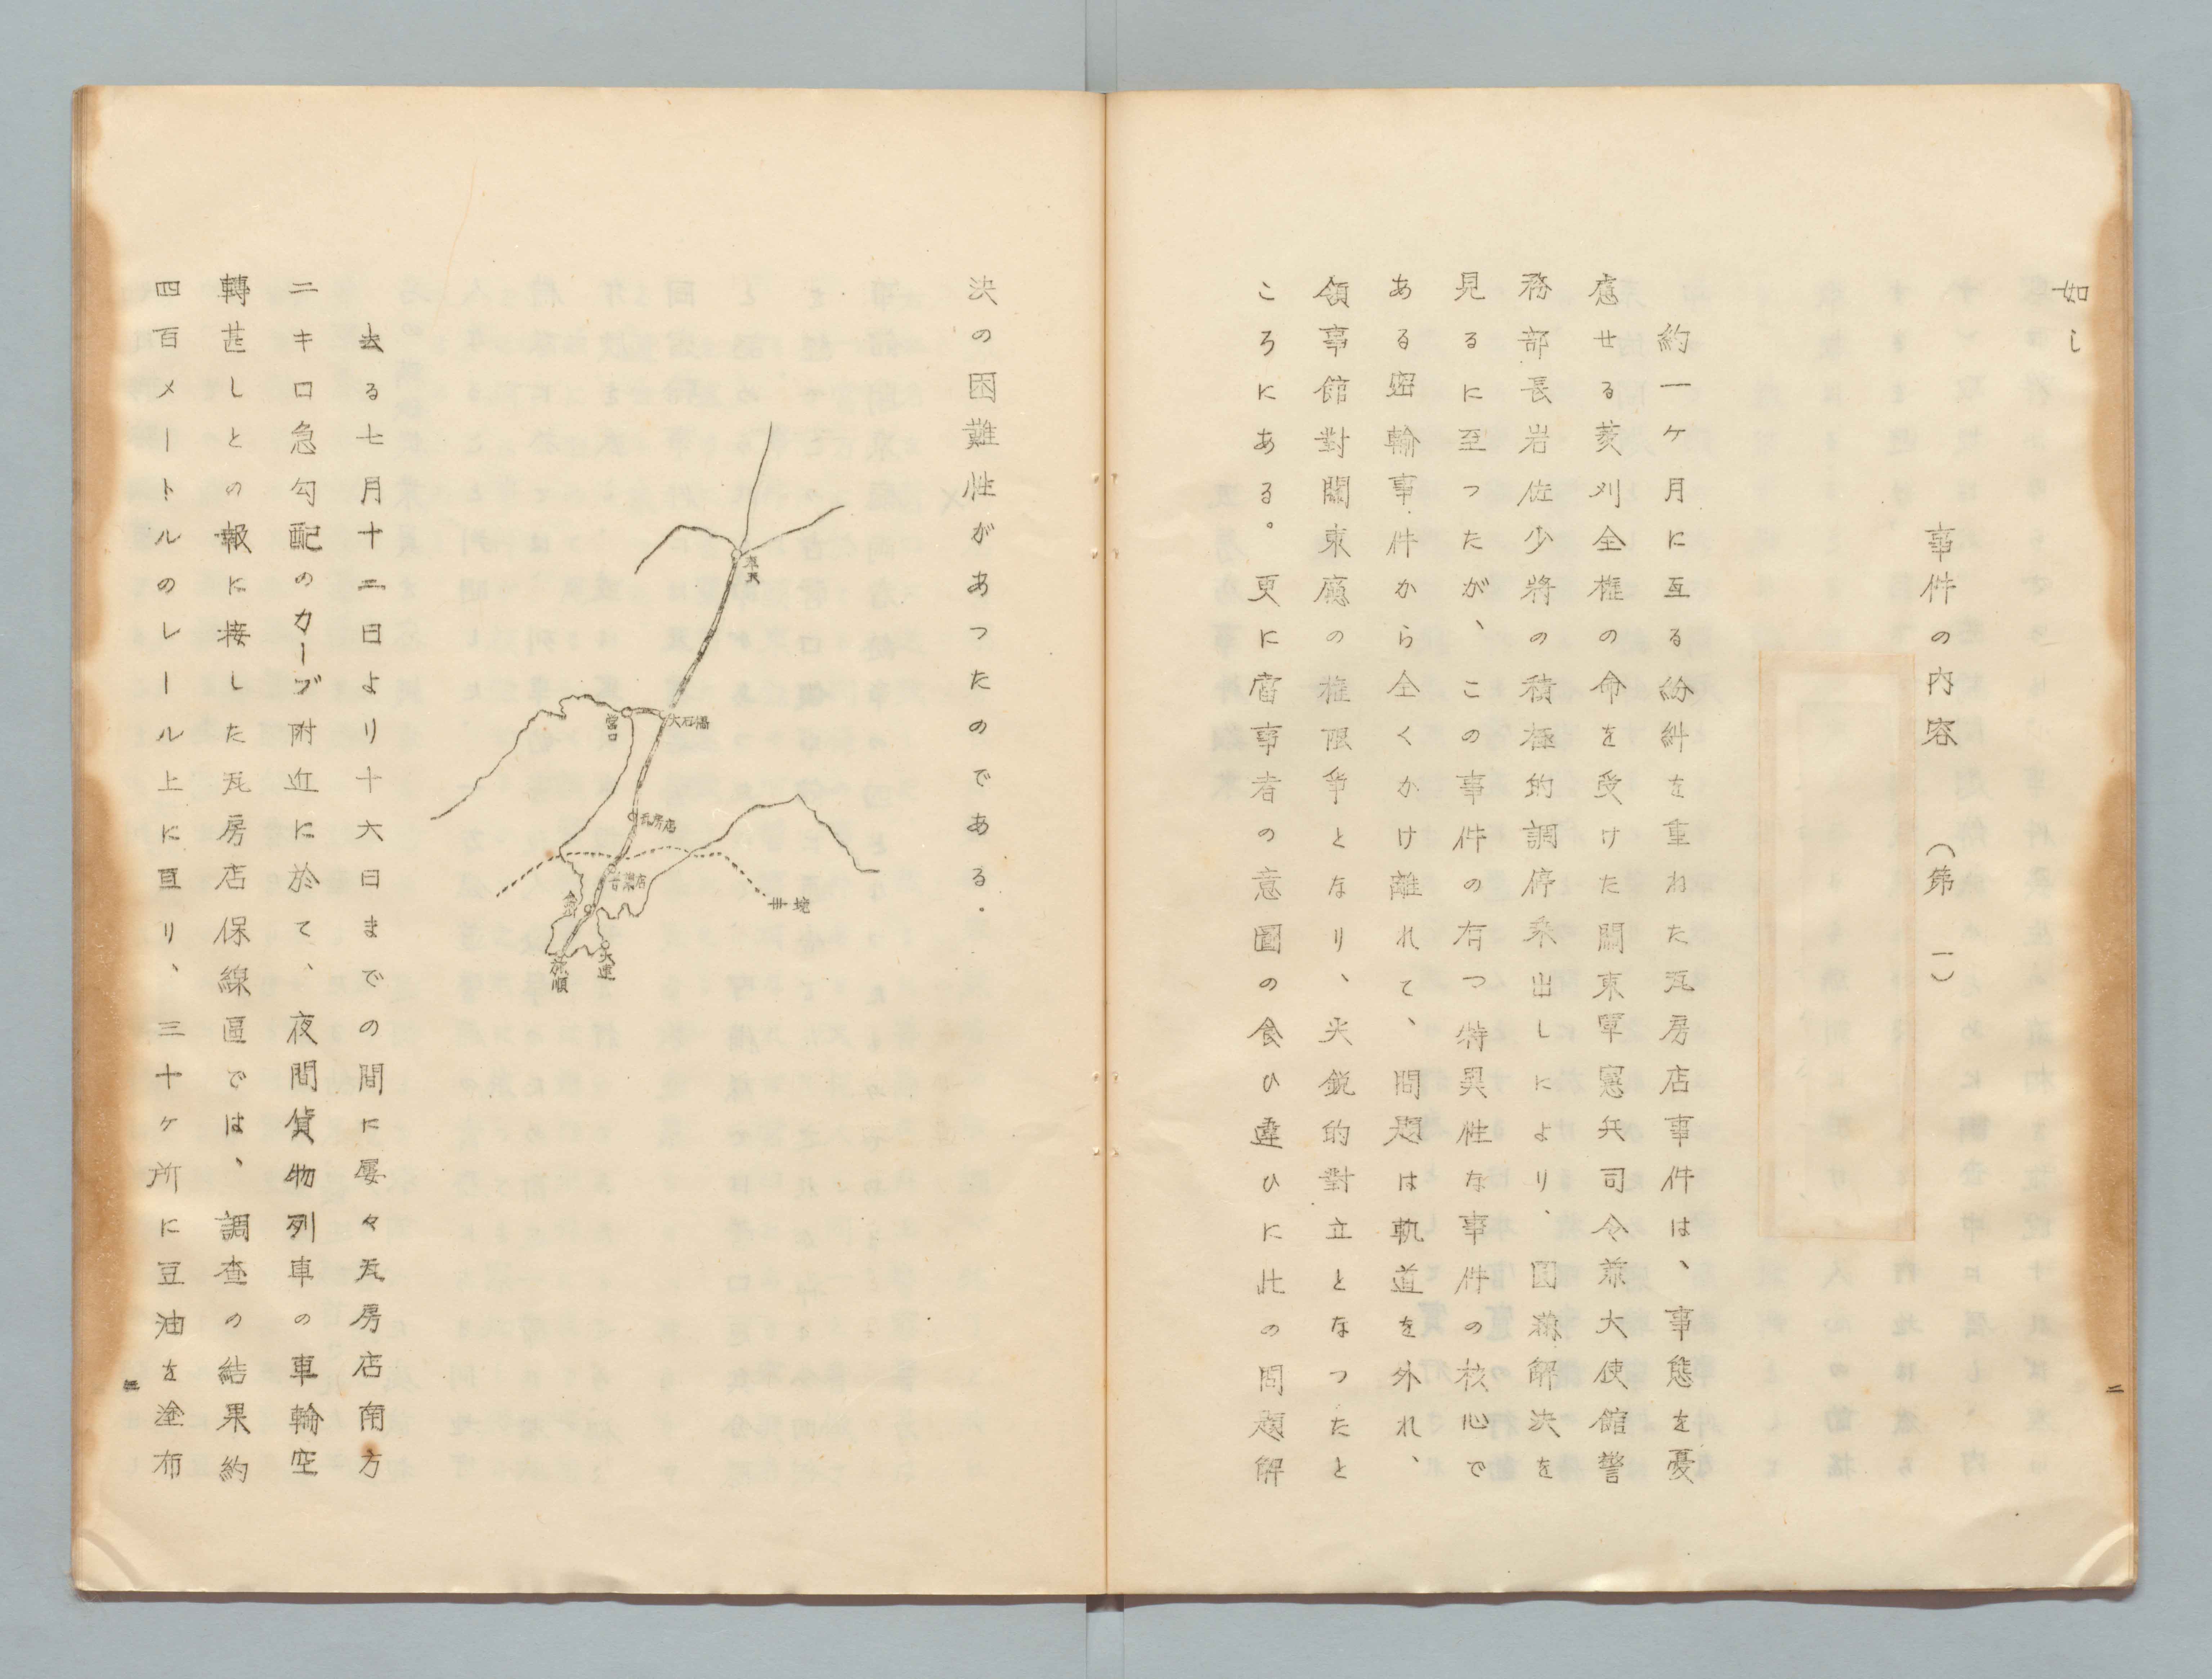 如し
事件の内容　（第一）
約一ヶ月に亙る紛糾を重ねた瓦房店事件は、事態を憂
慮せる菱刈全権の命を受けた關東軍憲兵司令兼大使館警
務部長岩佐少將の積極的調停乘出しにより、圓滿解決を
見るに至つたが、この事件の有つ特異性な事件の核心で
ある密輸事件から全くかけ離れて、問題は軌道を外れ、
領事館對關東廳の権限爭となり、尖鋭的對立となつたと
ころにある。更に當事者の意圖の食ひ違ひに此の問題解
二
決の困難性があつたのである．
奉天
大石橋
營口
瓦房店
普蘭店
金州
境
大連
旅順
去る七月十二日より十六日までの間に屡々瓦房店南方
二キロ急勾配のカーブ附近に於て、夜間貨物列車の車輪空
轉甚しとの報に接した瓦房店保線區では、調査の結果約
四百メートルのレール上に亘り、三十ヶ所に豆油を塗布
三